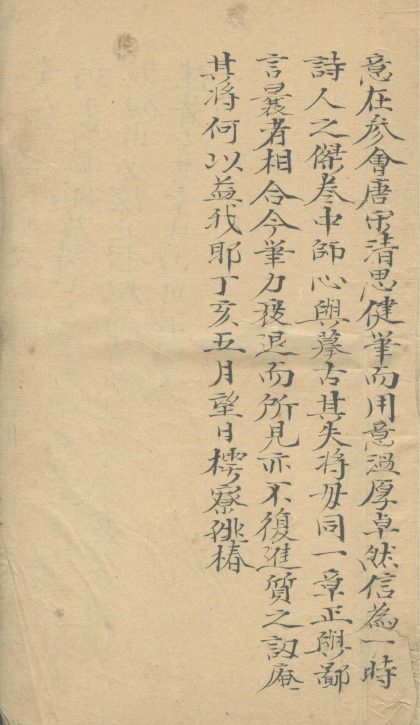 意在参會唐宋清思健筆而用意過厚卓然信為一時
詩人之傑卷中師心與摹古其失將毋同一章正與鄙
言曩者相合今筆力衰退而所見亦不復進質之訒庵
其將何以益我耶丁亥五月望日樗寮姚椿